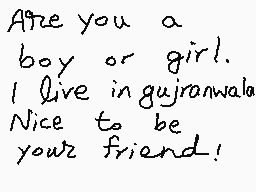 Are you a
boy or girl.
I live in gujranwala
Nice to be
your friend!